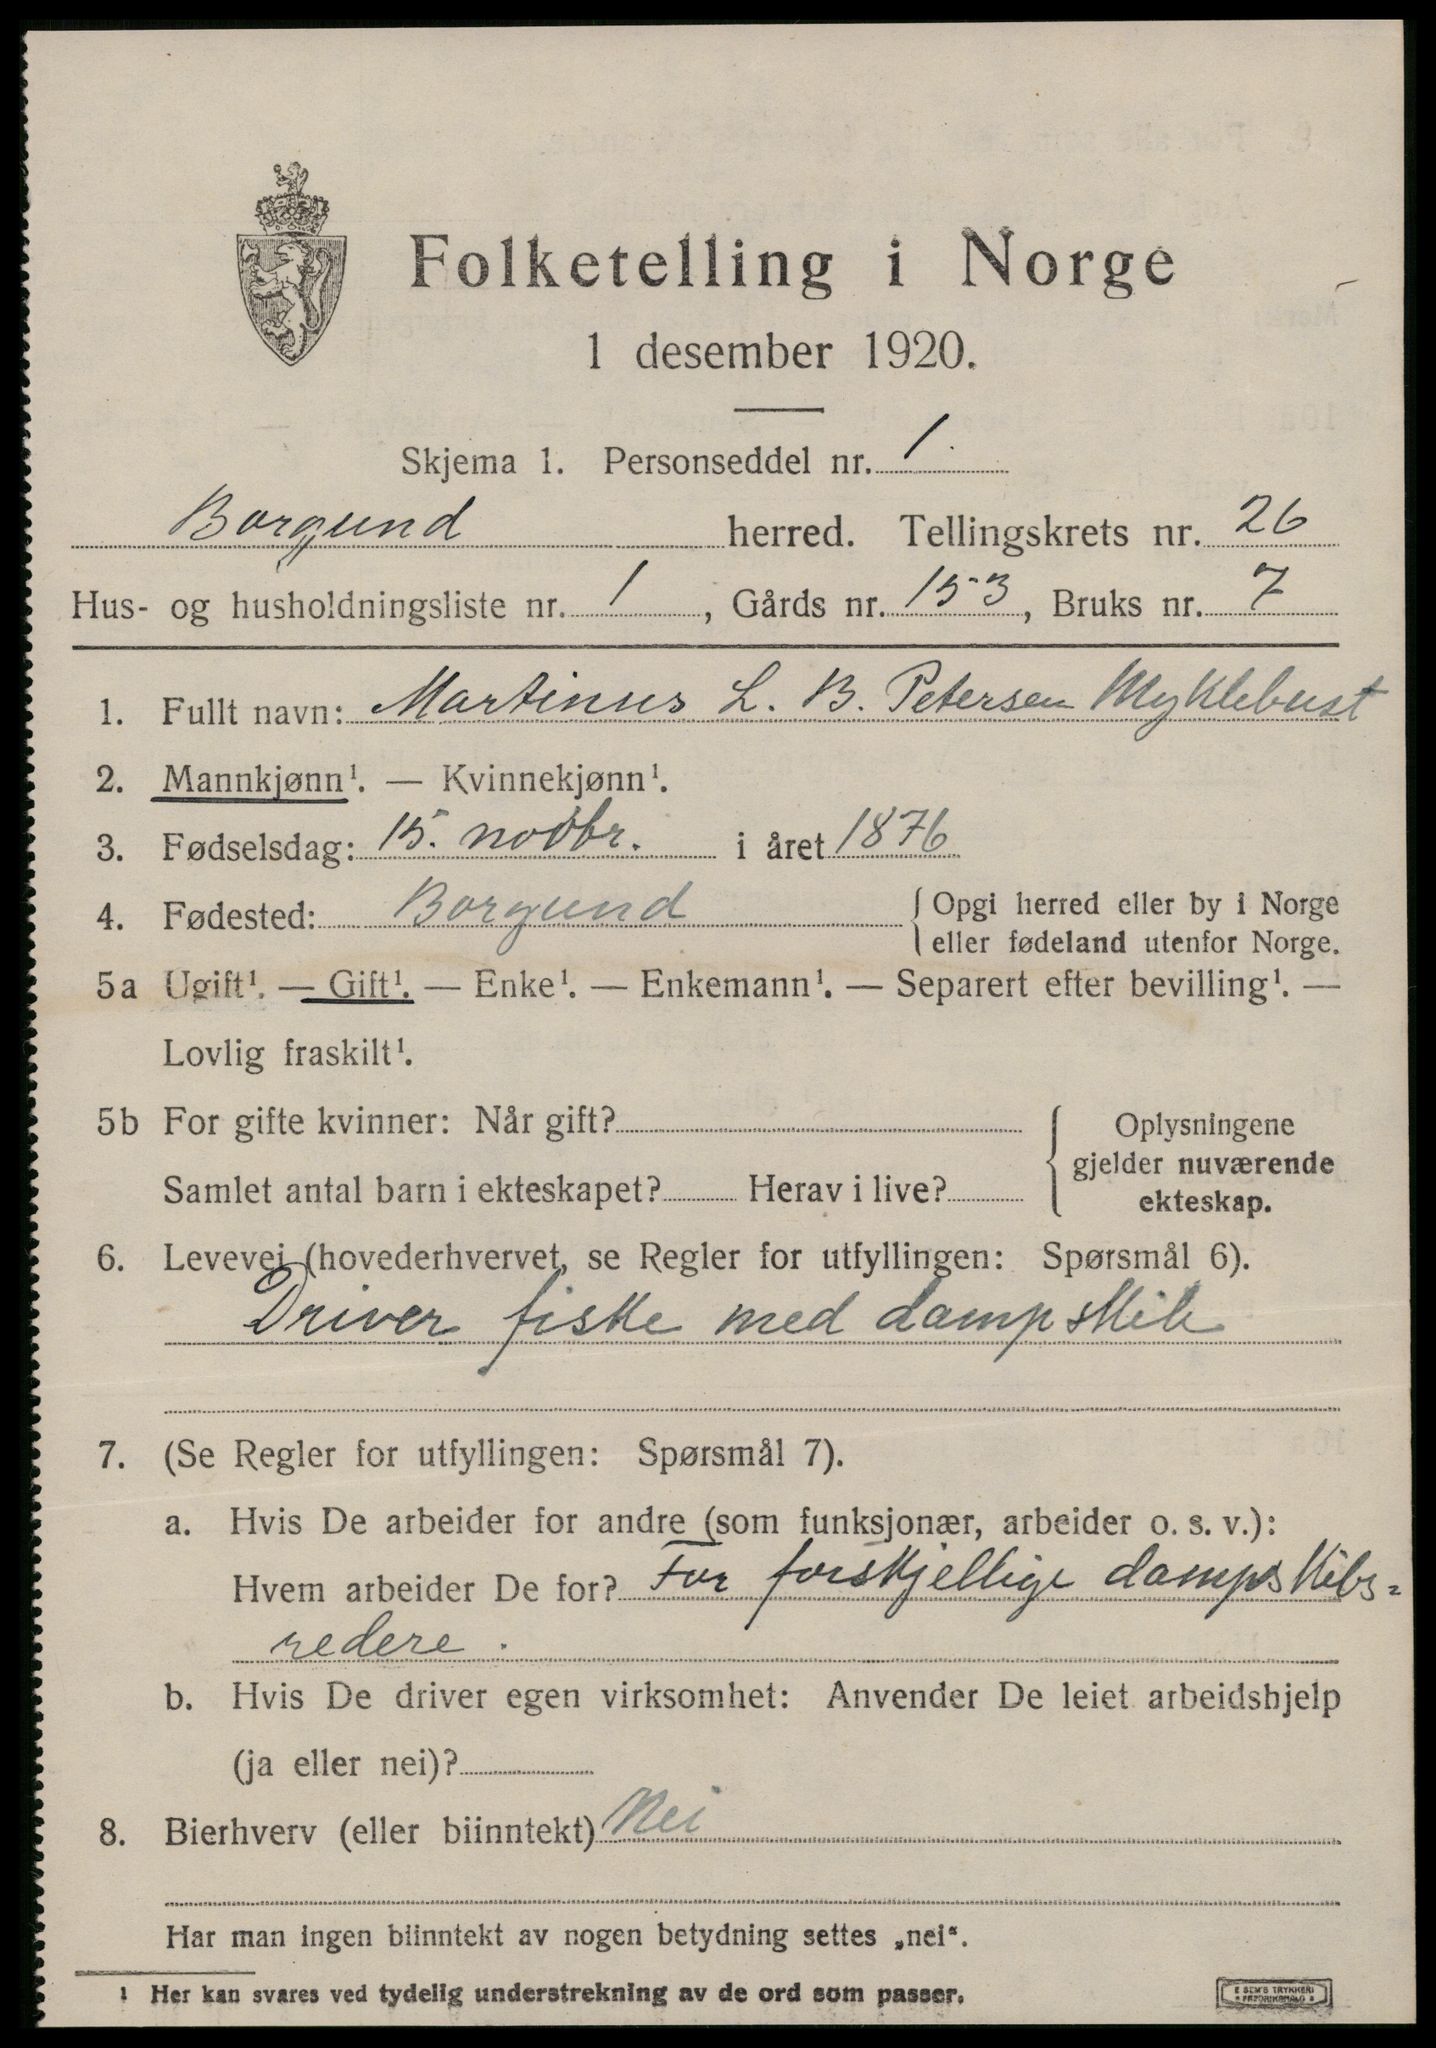 Folketelling i Norge
1 desember 1920.
Skjema 1. Personseddel nr. 1.
Borgund herred. Tellingskrets nr. 26
Hus- og husholdningsliste nr. 1, Gårds nr. 153, Bruks nr. 7
1. Fullt navn: Martinus L. B. Petersen Myklebust
2. Mannkjønn¹. — Kvinnekjønn¹.
3. Fødselsdag: 15. novbr. i året 1876
4. Fødested: Borgund { Opgi herred eller by i Norge
eller fødeland utenfor Norge.
5a Ugift¹. — Gift¹. — Enke¹. — Enkemann¹. — Separert efter bevilling¹. —
Lovlig fraskilt¹.
5b For gifte kvinner: Når gift? { Oplysningene
gjelder nuværende
Samlet antal barn i ekteskapet? Herav i live?
ekteskap.
6. Levevei (hovederhvervet, se Regler for utfyllingen: Spørsmål 6).
Driver fiske med dampskib
7. (Se Regler for utfyllingen: Spørsmål 7).
a. Hvis De arbeider for andre (som funksjonær, arbeider o. s. v.):
Hvem arbeider De for? For forskjellige dampskibs=
redere.
b. Hvis De driver egen virksomhet: Anvender De leiet arbeidshjelp
(ja eller nei)?
8. Bierhverv (eller biinntekt) Nei
Har man ingen biinntekt av nogen betydning settes „nei“.
¹ Her kan svares ved tydelig understrekning av de ord som passer.
E SEM'S TRYKKERI
* FREDRIKSHALD *